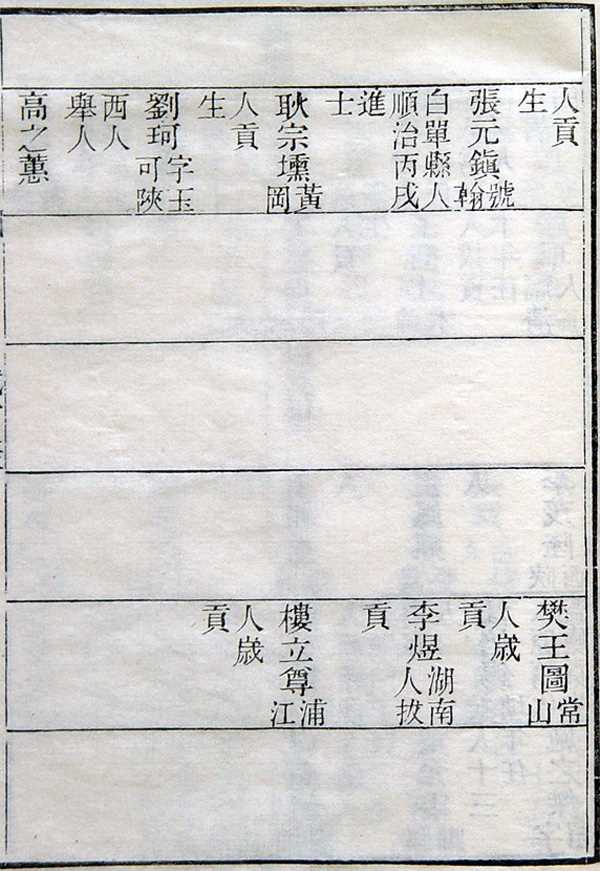 人貢
生
張元鎮號
翰
白單縣人
順治丙戌
進
士
耿宗壎黃
岡
人貢
生
劉珂字玉
可陝
西人
舉人
高之蕙
樊王圖常
山
人歲
貢
李煜湖南
人拔
貢
樓立尊浦
江
人歲
貢